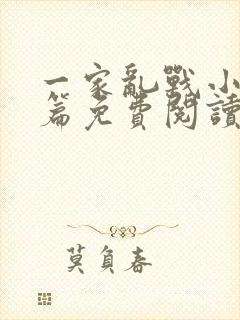 一家亂戰小
篇免費閱讀
莫負春